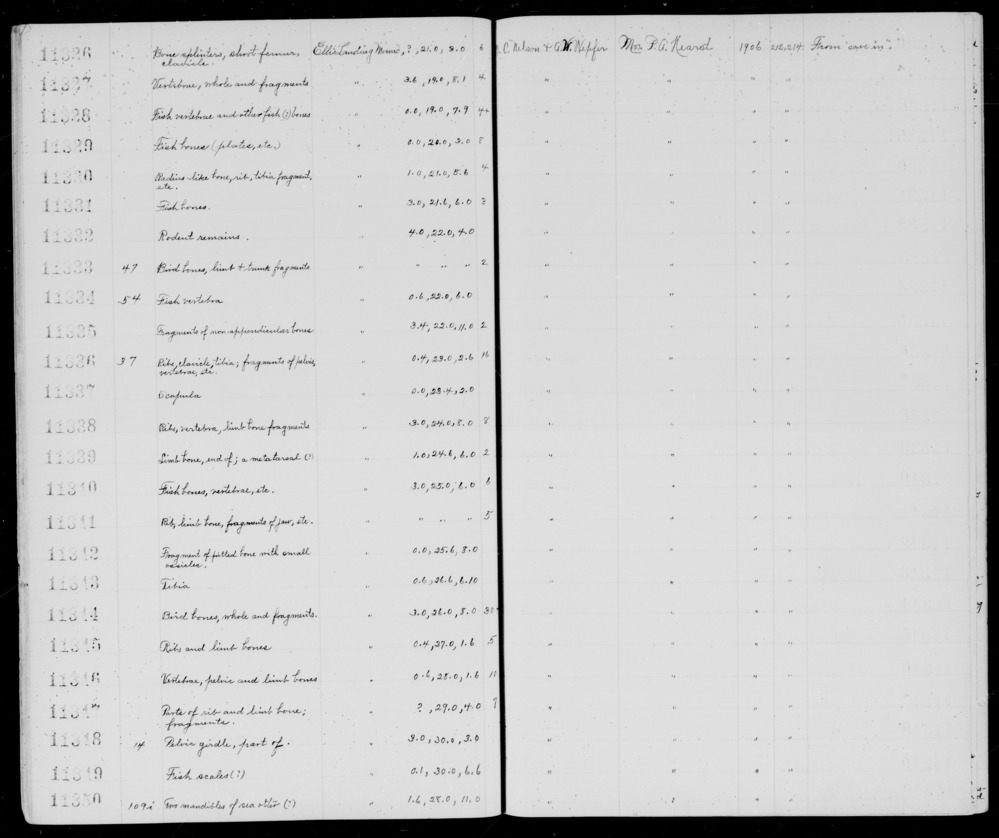 11326 Bone splinters, short femur, Ellis Landing Mound, ?, 21.0, 3.0 6 C. Nelson & A.W. Kepfer Mrs. P. A. Hearst 1906 212, 214. From "cave in".
clavicle.
11327 Vertebrae, whole and fragments " 3.6, 19.0, 8.1 4 " " " "
11328 Fish vertebrae and other fish (?) bones " 0.0, 19.0, 7.9 4+ " " " "
11329 Fish bones (plates, etc.) " 0.0, 20.0, 3.0 8 " " " "
11330 Radius-like bone, rib, tibia fragment, " 1.0, 21.0, 5.6 4 " " " "
etc.
11331 Fish bones. " 3.0, 21.6, 6.0 3 " " " "
11332 Rodent remains. " 4.0, 22.0, 4.0 " " " "
11333 47 Bird bones, limb & trunk fragments " " " " 2 " " " "
11334 54 Fish vertebra " 0.6, 22.0, 6.0 " " " "
11335 Fragments of non-appendicular bones " 3.4, 22.0, 11.0 2 " " " "
11336 37 Ribs, clavicle, tibia; fragments of pelvis, " 0.4, 23.0, 2.6 16 " " " "
vertebrae, etc.
11337 Scapula " 0.0, 23.4, 2.0 " " " "
11338 Ribs, vertebra, limb bone fragments " 3.0, 24.0, 8.0 8 " " " "
11339 Limb bone, end of; a metatarsal (?) " 1.0, 24.6, 6.0 2 " " " "
11340 Fish bones, vertebrae, etc. " 3.0, 25.0, 6.0 6 " " " "
11341 Rib, limb bone, fragments of jaw, etc. " " " " 5 " " " "
11342 Fragment of pitted bone with small " 0.0, 25.6, 8.0 " " " "
vesicles.
11343 Tibia " 0.6, 26.6, 6.10 " " " "
11344 Bird bones, whole and fragments. " 3.0, 26.0, 8.0 " " " "
11345 Ribs and limb bones " 0.4, 27.0, 1.6 5 " " " "
11346 Vertebrae, pelvic and limb bones " 0.6, 28.0, 1.6 11 " " " "
11347 Parts of rib and limb bone; " ?, 29.0, 4.0 " " " "
fragments.
11348 14 Pelvic girdle, part of. " 3.0, 30.0, 3.0 " " " "
11349 Fish scales (?) " 0.1, 30.0, 6.6 " " " "
11350 109i Two mandibles of sea otter (?) " 1.6, 28.0, 11.0 " " " "